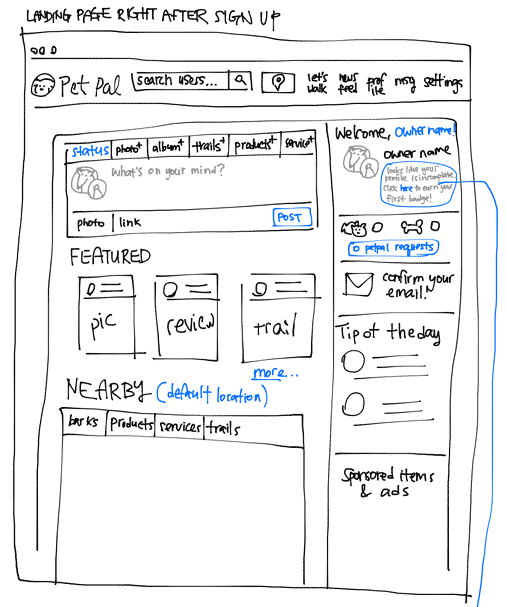 LANDING PAGE RIGHT AFTER SIGN UP
Pet Pal
search users...
let's walk
news feed
profile
msg
settings
status
photo+
album+
trails+
products+
service+
What's on your mind?
photo
link
POST
FEATURED
pic
review
trail
more...
NEARBY (default location)
barks
products
services
trails
Welcome, Owner name!
owner name
looks like your
profile is incomplete.
Click here to earn your
first badge!
0
0
0 petpal requests
confirm your
email.
Tip of the day
Sponsored items
& ads